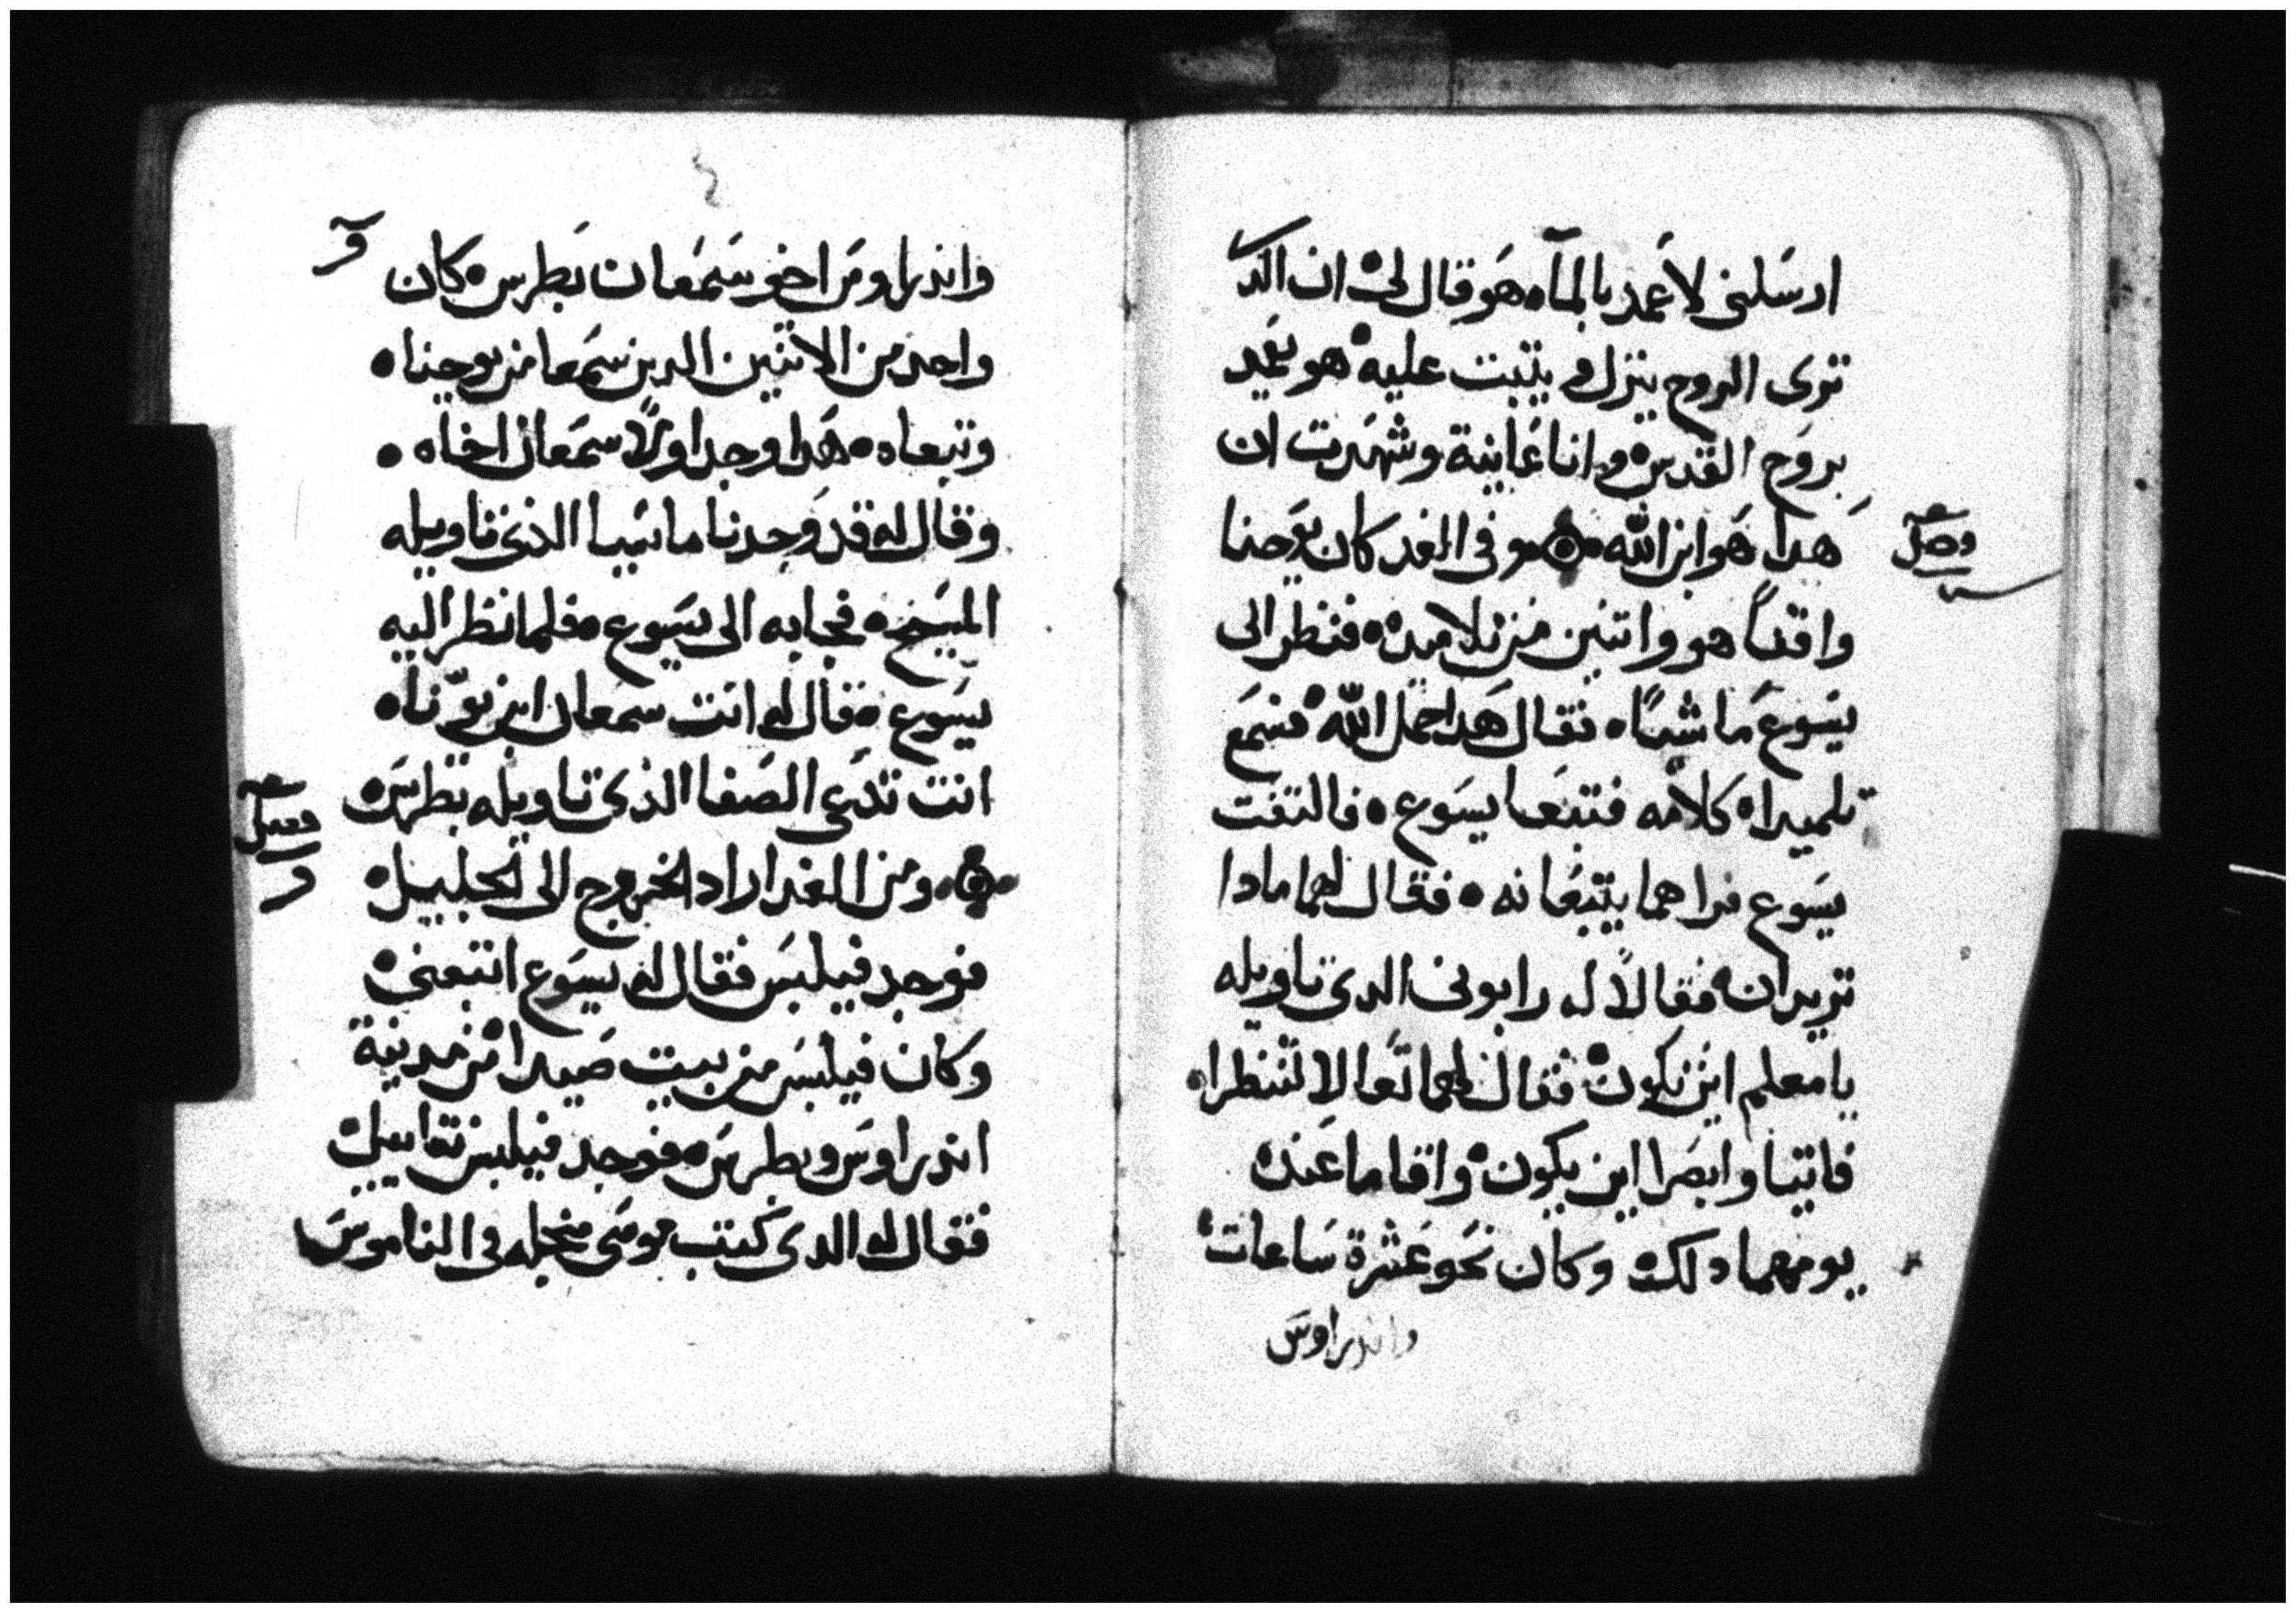 ارسلنى لاعمد بالمآء هو قال لى ان الد
ترى الروح ينزل و يتبت عليه هو يعمد
بروح القدس و انا عاينة وشهدت ان
هدا هو ابن الله و فى الغد كان يوحنا
فصل
واقفاً هو واتنين من تلاميده فنظر الى
يسوع ماشياً فقال هدا حمل الله فسمع
تلميداه كلامه فتبعا يسوع فالتفت
يسوع فراهما يتبعانه فقال لهما مادا
تريدان فقالا له رابونى الدى تاويله
يا معلم اين تكون فقال لهما تعالا لتنظرا
فاتيا وابصرا اين يكون واقاما عنده
يومهما دلك وكان نحو عشرة ساعات
واندراوس
واندراوس اخو سمعان بطرس كان
واحد من الاتنين الدين سمعا من يوحنا
وتبعاه هدا وجد اولاً سمعان اخاه
وقال له قد وجدنا ماسيا الذى تاويله
المسيح فجا به الى يسوع فلما نظر اليه
يسوع قال له انت سمعان ابن يونا
انت تدعى الصفا الذى تاويله بطرس
فصل
و
ومن الغد اراد الخروج الى الجليل
فوجد فيلبس فقال له يسوع اتبعنى
وكان فيلبس من بيت صيدا من مدينة
اندراوس وبطرس فوجد فيلبس
فقال له الدى كتب موسى من اجله فى الناموس